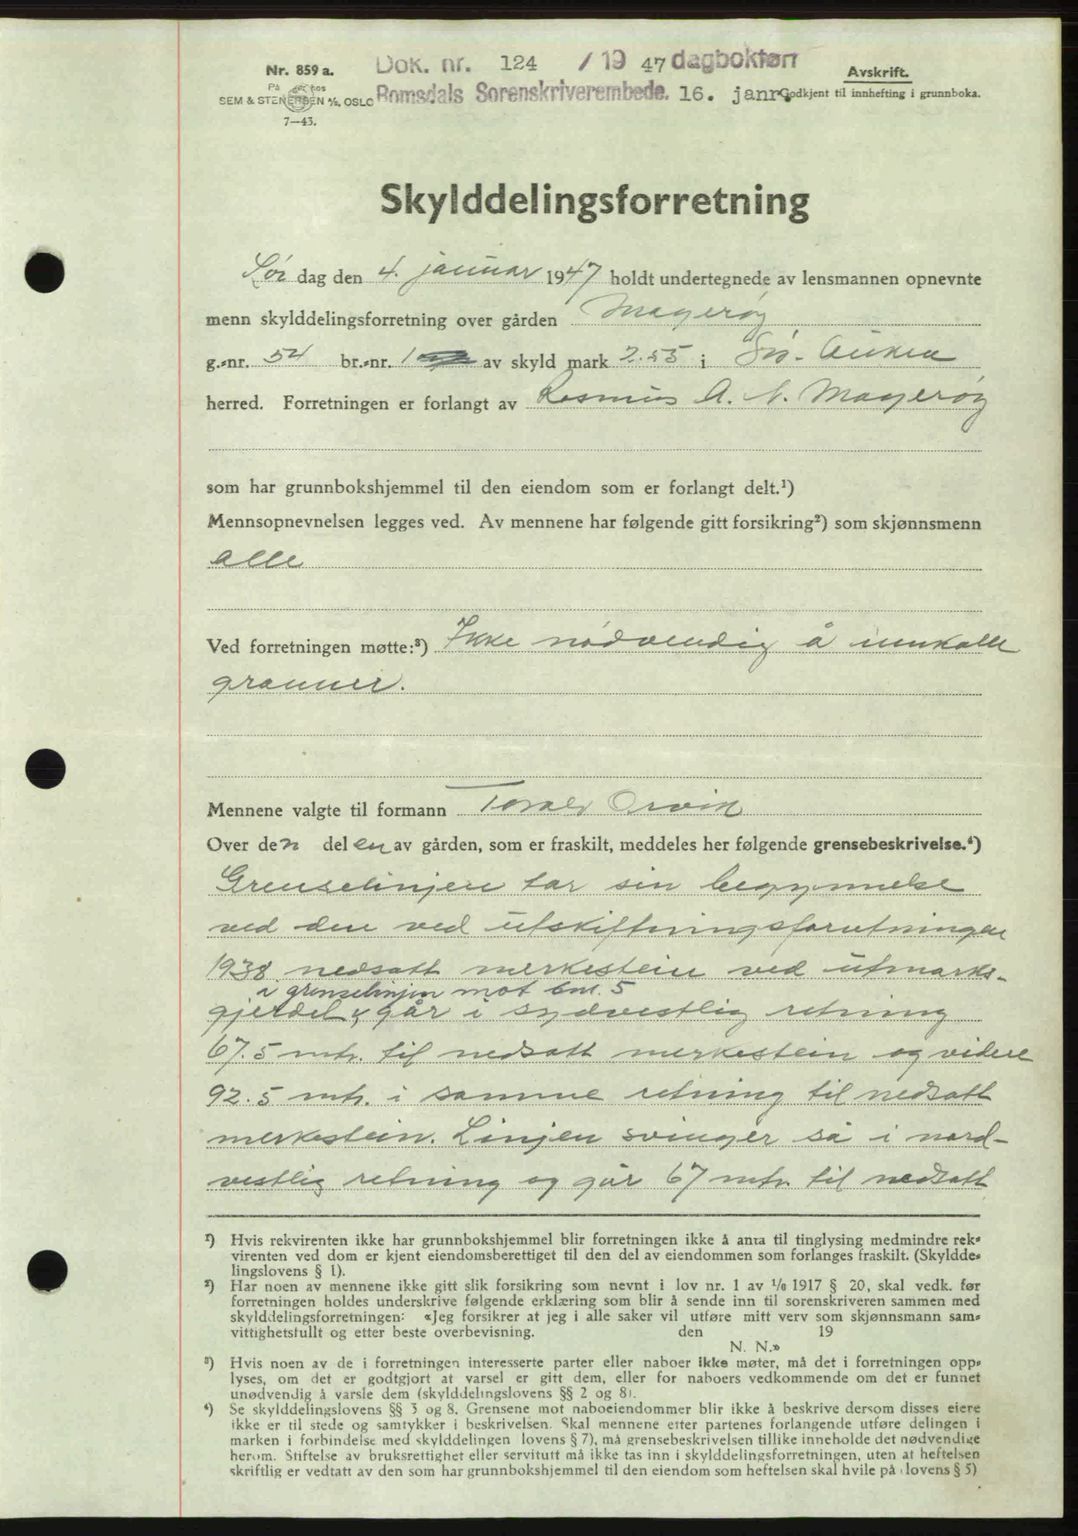 Nr. 859 a.
SEM & STENERSEN A/S, OSLO
7—43.
Dok. nr. 124 / 19 47 dagbokført
Romsdals Sorenskriverembede. 16. janr.
Avskrift.
Godkjent til innhefting i grunnboka.
Skylddelingsforretning
Lør dag den 4. januar 1947 holdt undertegnede av lensmannen opnevnte
menn skylddelingsforretning over gården Magerøy
g.-nr. 54 br.-nr. 1 av skyld mark 2.55 i Sør-Aukra
herred. Forretningen er forlangt av Rasmus A. N. Magerøy
som har grunnbokshjemmel til den eiendom som er forlangt delt.¹)
Mennsopnevnelsen legges ved. Av mennene har følgende gitt forsikring²) som skjønnsmenn
alle
Ved forretningen møtte:³) Ikke nødvendig å innkalle
granner.
Mennene valgte til formann Torald Orvik
Over den delen av gården, som er fraskilt, meddeles her følgende grensebeskrivelse.⁴)
Grenselinjen tar sin begynnelse
ved den ved utskiftningsforretningen
1938 nedsatt merkestein ved utmarks-
i grenselinjen mot bnr. 5
gjerdet, går i sydvestlig retning
67.5 mtr. til nedsatt merkestein og videre
92.5 mtr. i samme retning til nedsatt
merkestein. Linjen svinger så i nord-
vestlig retning og går 67 mtr. til nedsatt
¹) Hvis rekvirenten ikke har grunnbokshjemmel blir forretningen ikke å anta til tinglysing medmindre rek-
virenten ved dom er kjent eiendomsberettiget til den del av eiendommen som forlanges fraskilt. (Skyldde-
lingslovens § 1).
²) Har noen av mennene ikke gitt slik forsikring som nevnt i lov nr. 1 av 1/6 1917 § 20, skal vedk. før
forretningen holdes underskrive følgende erklæring som blir å sende inn til sorenskriveren sammen med
skylddelingsforretningen: «Jeg forsikrer at jeg i alle saker vil utføre mitt verv som skjønnsmann sam-
vittighetsfullt og etter beste overbevisning. den 19
N. N.»
³) Hvis noen av de i forretningen interesserte parter eller naboer ikke møter, må det i forretningen opp-
lyses, om det er godtgjort at varsel er gitt dem, eller for naboers vedkommende om det er funnet
unødvendig å varsle dem (skylddelingslovens §§ 2 og 8).
⁴) Se skylddelingslovens §§ 3 og 8. Grensene mot naboeiendommer blir ikke å beskrive dersom disses eiere
ikke er til stede og samtykker i beskrivelsen. Skal mennene etter partenes forlangende utføre delingen i
marken i forbindelse med skylddelingen lovens § 7), må grensebeskrivelsen tillike inneholde det nødvendige
herom. Stiftelse av bruksrettighet eller servitutt må ikke tas inn i skylddelingsforretningen, uten at heftelsen
skriftlig er vedtatt av den som har grunnbokshjemmel til den eiendom som heftelsen skal hvile på lovens § 5)